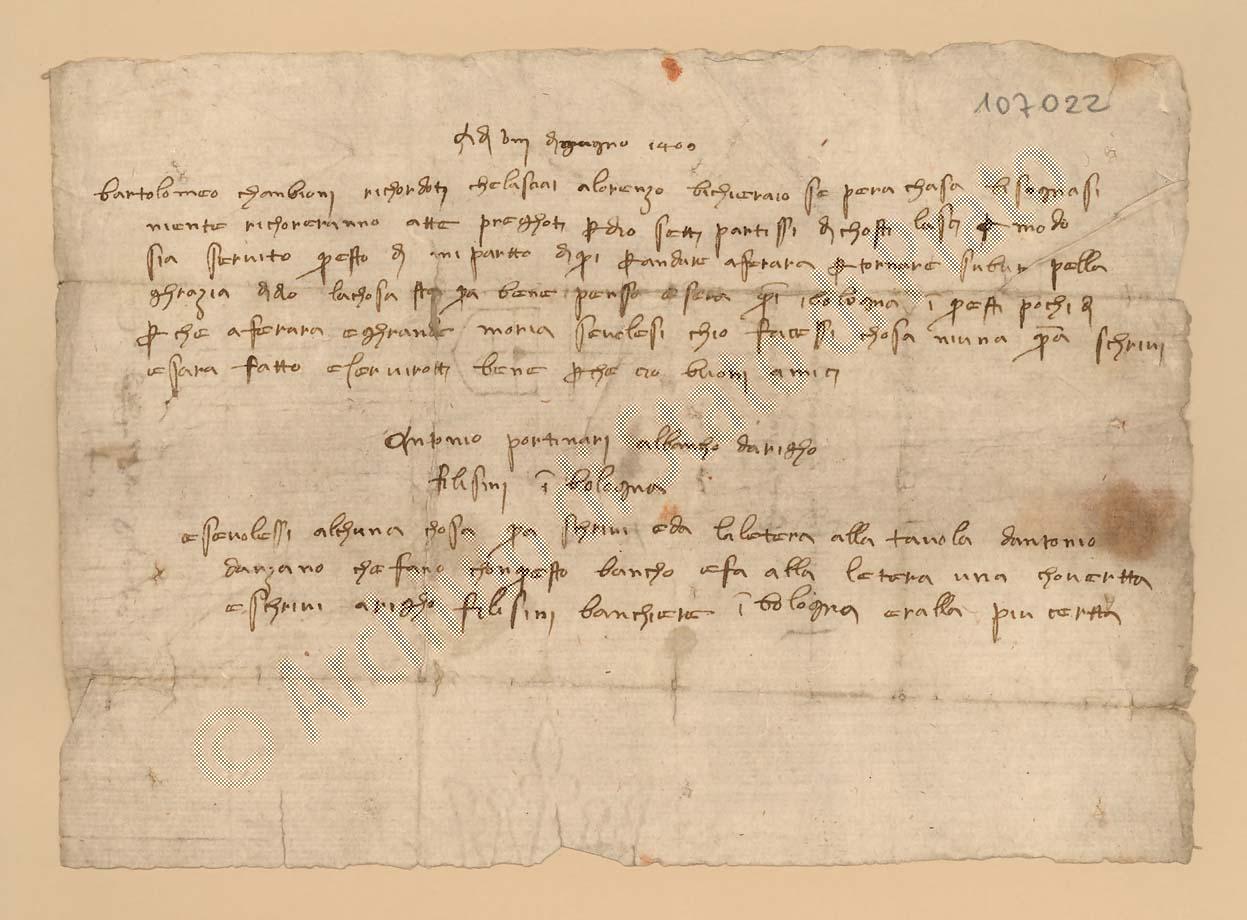 107022
A dì VIII di giugno 1400
bartolomeo chanbioni richordoti chelasciai alorenzo bichieraio se pera chasa bisognasi
niente richoreranno atte preghoti per dio setti partissi di chosti lasci per modo
sia servito questo dì mi partto di qui per andare aferara per tornare subito pella
ghrazia didio lachosa sta qua bene penso esera qui ibologna i questi pochi dì
per che aferara eghrande moria sevolesi chio facessi chosa niuna qua schrivi
essara fatto eservirotti bene perche cio buoni amici
Antonio portinari albancho darigho
filisini i bologna
esevolessi alchuna chosa qua schrivi eda laletera alla tavola dantonio
danzano che fano chonquesto bancho efa alla letera una chovertta
eschrivi arigho filisini banchiere i bologna eralla piu certta
© Archivio di Stato di Prato